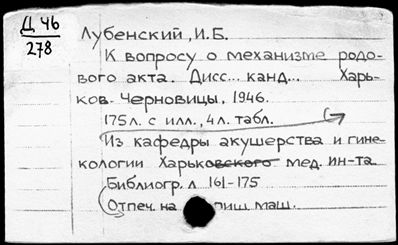 Д 46
278
Лубенский, И.Б.
К вопросу о механизме родо-
вого акта. Дисс... канд... Харь-
ков- Черновицы, 1946.
175 л. с илл., 4 л. табл.
Из кафедры акушерства и гине-
кологии Харьковского мед. ин-та
Библиогр. л 161-175
Отпеч. на пиш. маш.